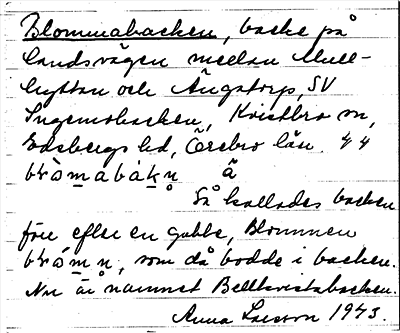 Blommabacken, backe på
landsvägen mellan Mull-
hyttan och Ängstorp, SV
Ingemobacken, Kvistbro sn,
Edsbergs hd, Örebro län.
Så kallades backen
förr efter en gubbe, Blommen
som då bodde i backen.
Nu är namnet Bellkvistabacken.
Anna Larsson 1943.